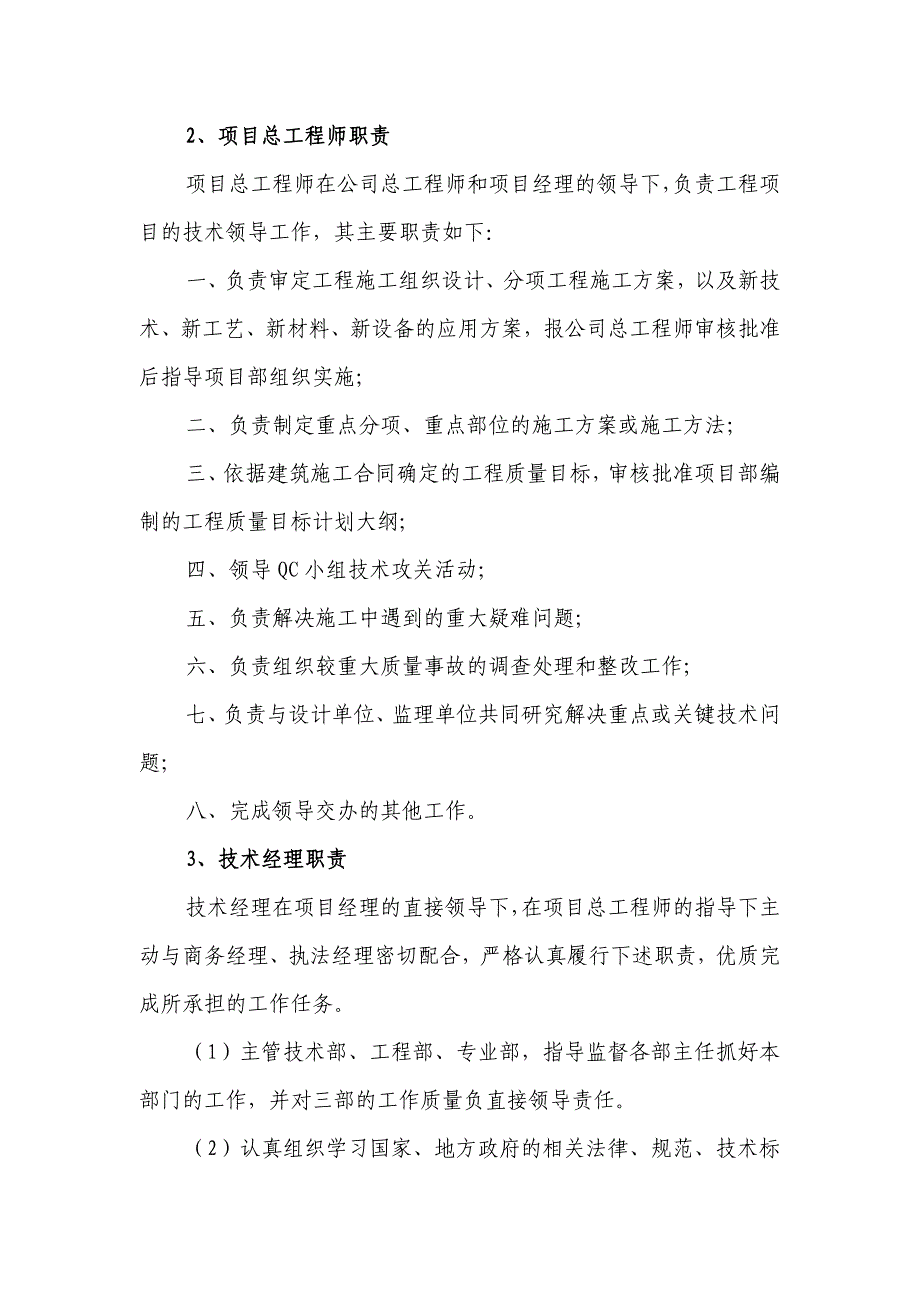 2、项目总工程师职责
项目总工程师在公司总工程师和项目经理的领导下，负责工程项
目的技术领导工作，其主要职责如下：
一、负责审定工程施工组织设计、分项工程施工方案，以及新技
术、新工艺、新材料、新设备的应用方案，报公司总工程师审核批准
后指导项目部组织实施；
二、负责制定重点分项、重点部位的施工方案或施工方法；
三、依据建筑施工合同确定的工程质量目标，审核批准项目部编
制的工程质量目标计划大纲；
四、领导 QC 小组技术攻关活动；
五、负责解决施工中遇到的重大疑难问题；
六、负责组织较重大质量事故的调查处理和整改工作；
七、负责与设计单位、监理单位共同研究解决重点或关键技术问
题；
八、完成领导交办的其他工作。
3、技术经理职责
技术经理在项目经理的直接领导下，在项目总工程师的指导下主
动与商务经理、执法经理密切配合，严格认真履行下述职责，优质完
成所承担的工作任务。
（1）主管技术部、工程部、专业部，指导监督各部主任抓好本
部门的工作，并对三部的工作质量负直接领导责任。
（2）认真组织学习国家、地方政府的相关法律、规范、技术标